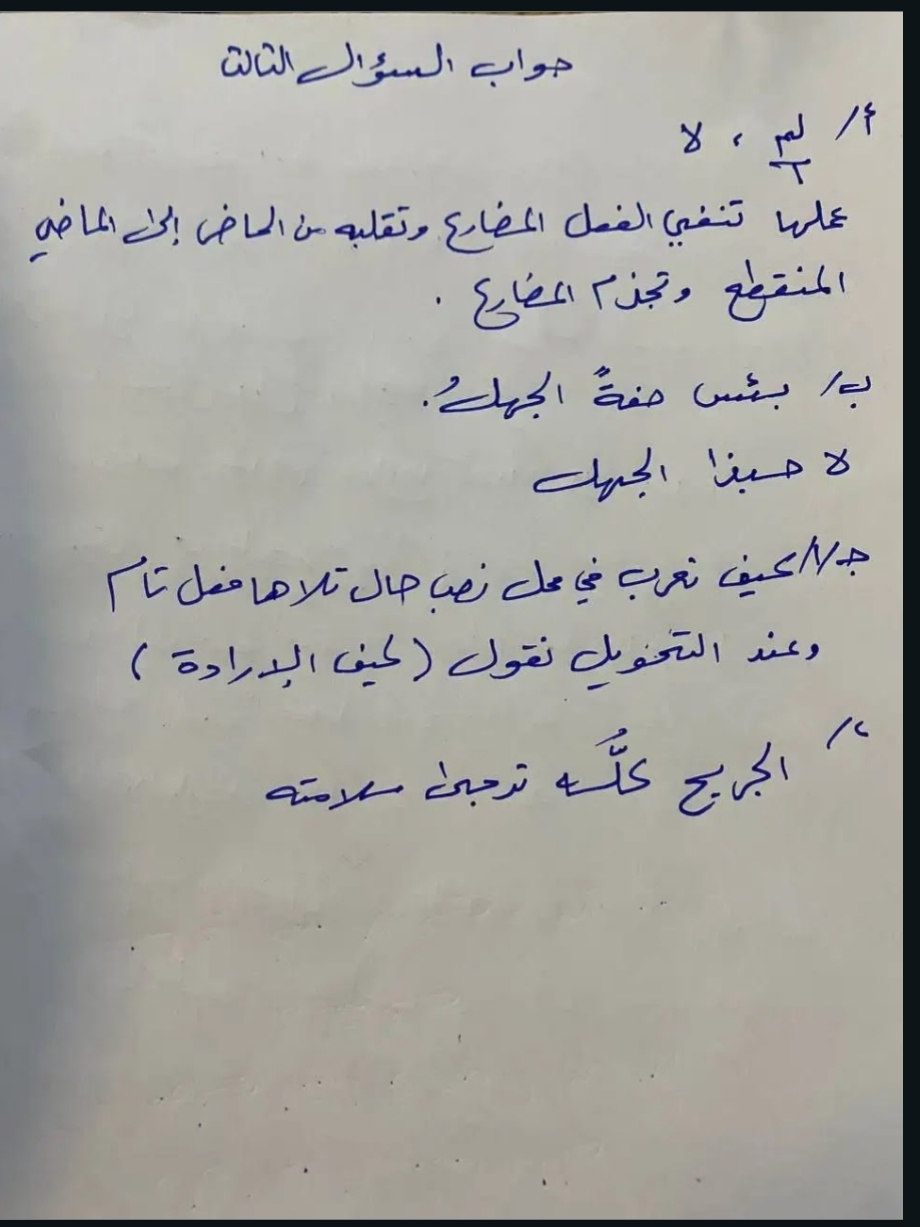 جواب السؤال الثالث
أ/ لم ، لا
عملها تنفي الفعل المضارع وتقلبه من الحاضر إلى الماضي
المنقطع وتجزم المضارع .
ب/ بئس صفةً الجهلُ.
لا حبذا الجهل
جـ/١/ كيف تعرب في محل نصب حال تلاها فعل تام
وعند التحويل نقول (كيف الإرادة )
٢/ الجريح علَّه ترجى سلامته